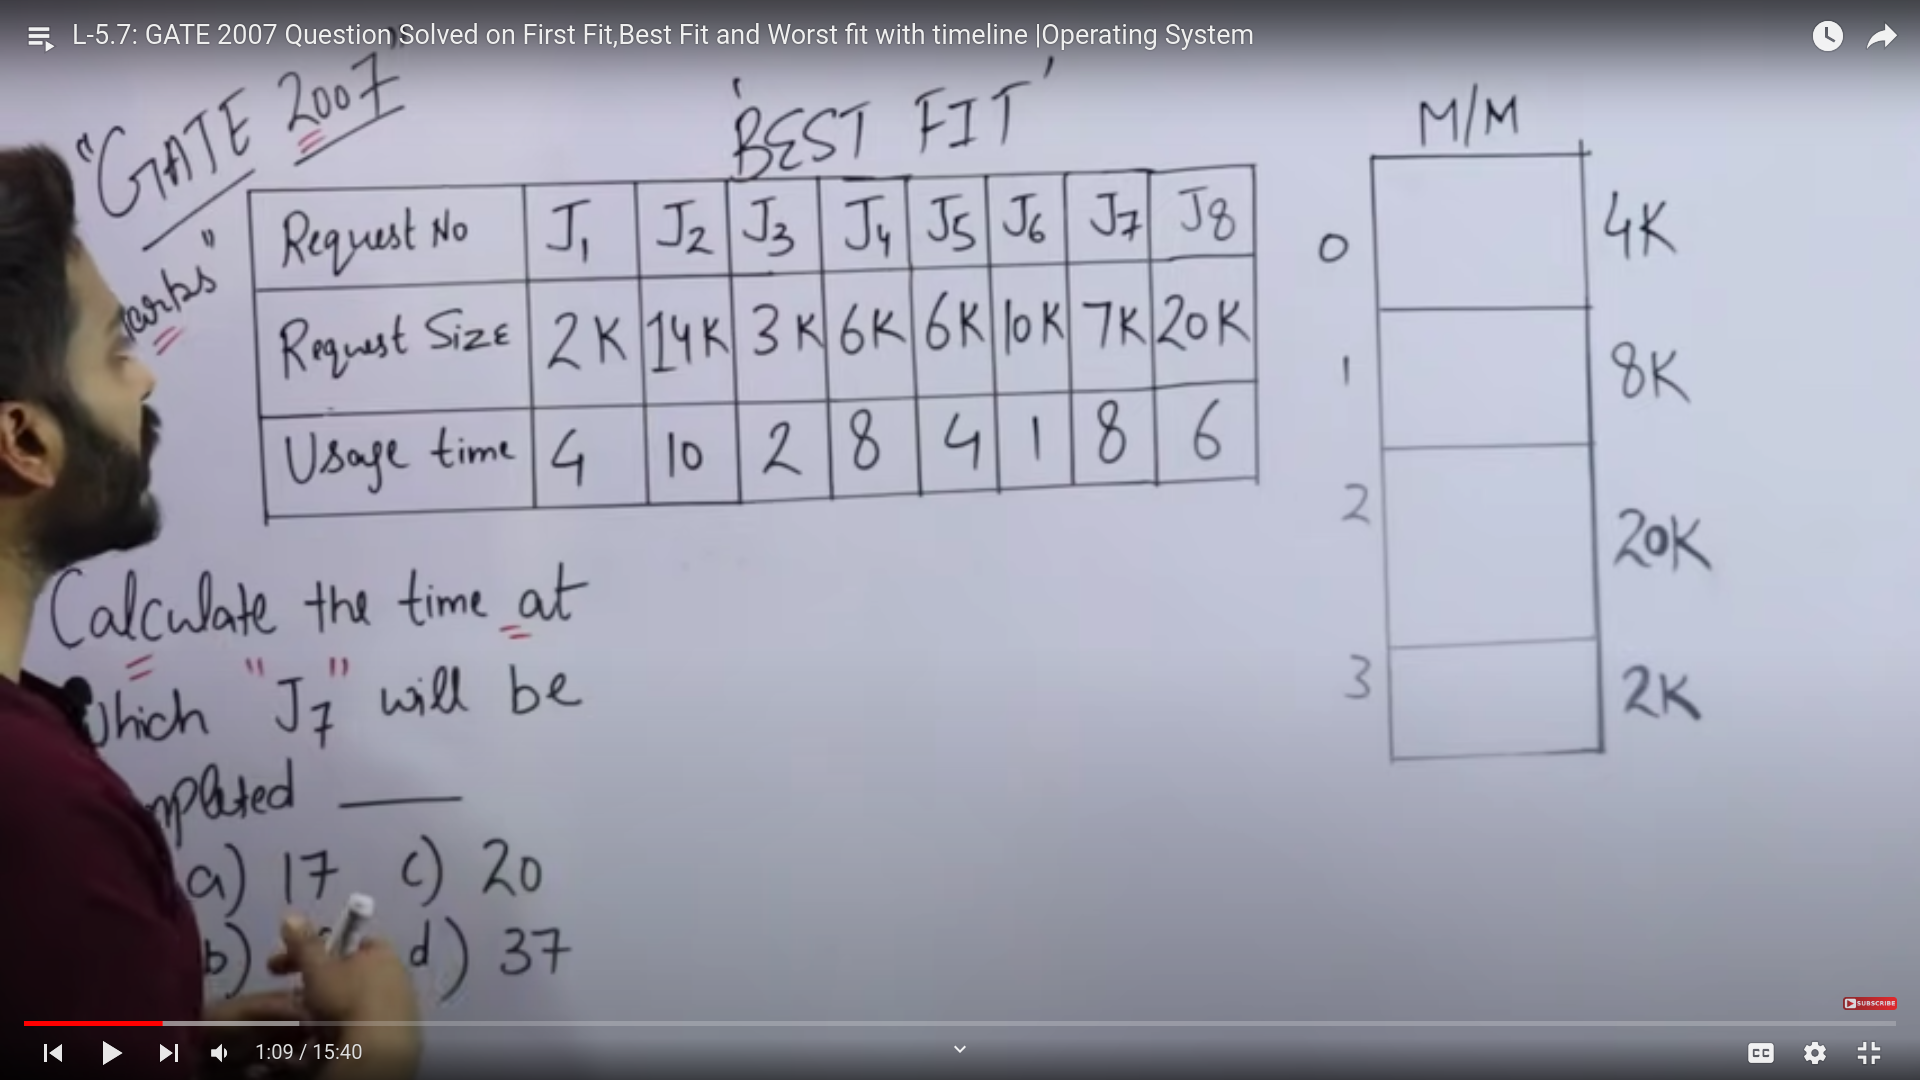 L-5.7: GATE 2007 Question Solved on First Fit,Best Fit and Worst fit with timeline |Operating System
"GATE 2007"
'BEST FIT'
M/M
Request No J1 J2 J3 J4 J5 J6 J7 J8
Request Size 2K 14K 3K 6K 6K 10K 7K 20K
Usage time 4 10 2 8 4 1 8 6
0 4K
1 8K
2 20K
3 2K
Calculate the time at
which "J7" will be
a) 17 c) 20
b) d) 37
SUBSCRIBE
1:09 / 15:40
CC